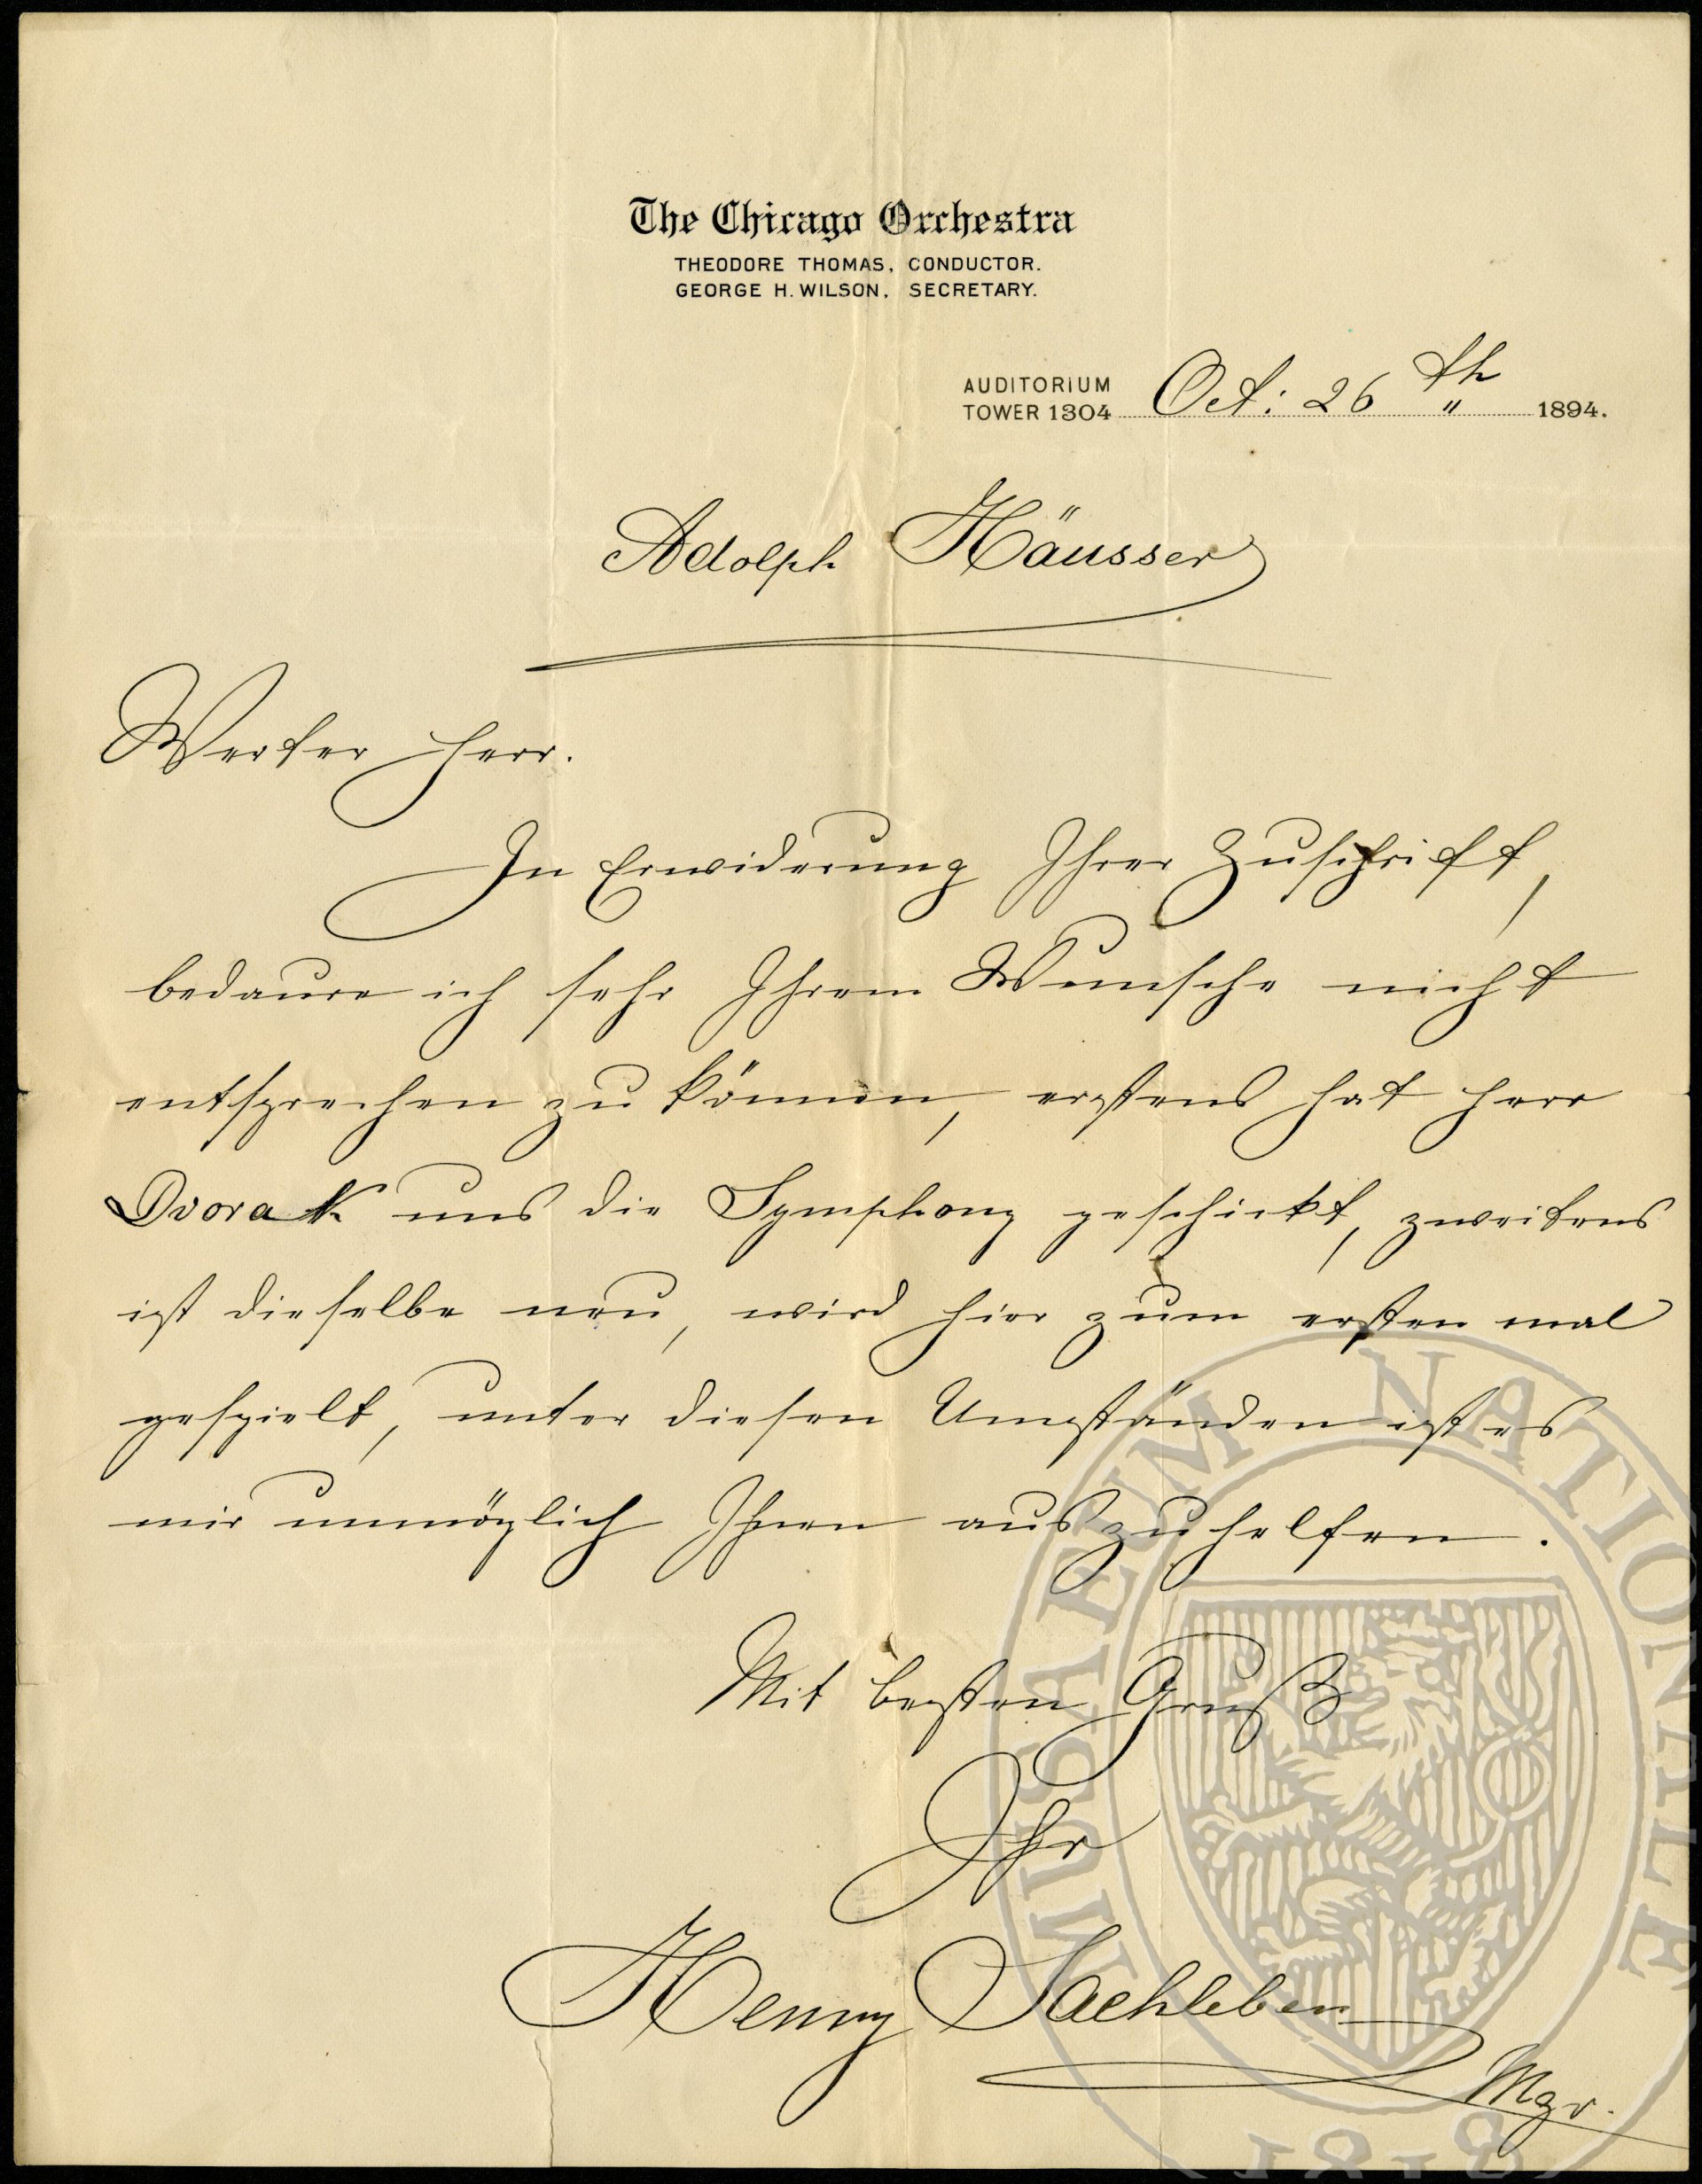 The Chicago Orchestra
THEODORE THOMAS, CONDUCTOR.
GEORGE H. WILSON, SECRETARY.
AUDITORIUM
TOWER 1304 Oct: 26th 1894.
Adolph Häusser
Werter Herr.
In Erwiderung Ihrer Zuschrift,
bedaure ich sehr Ihrem Wunsche nicht
entsprechen zu können, erstens hat Herr
Dvorak uns die Symphony geschickt, zweitens
ist dieselbe neu, wird hier zum ersten mal
gespielt, unter diesen Umständen ist es
mir unmöglich Ihnen auszuhelfen.
Mit besten Gruß
Ihr
Henry Sachleben
Mgr.
MUSAEUM NATIONALE
1818